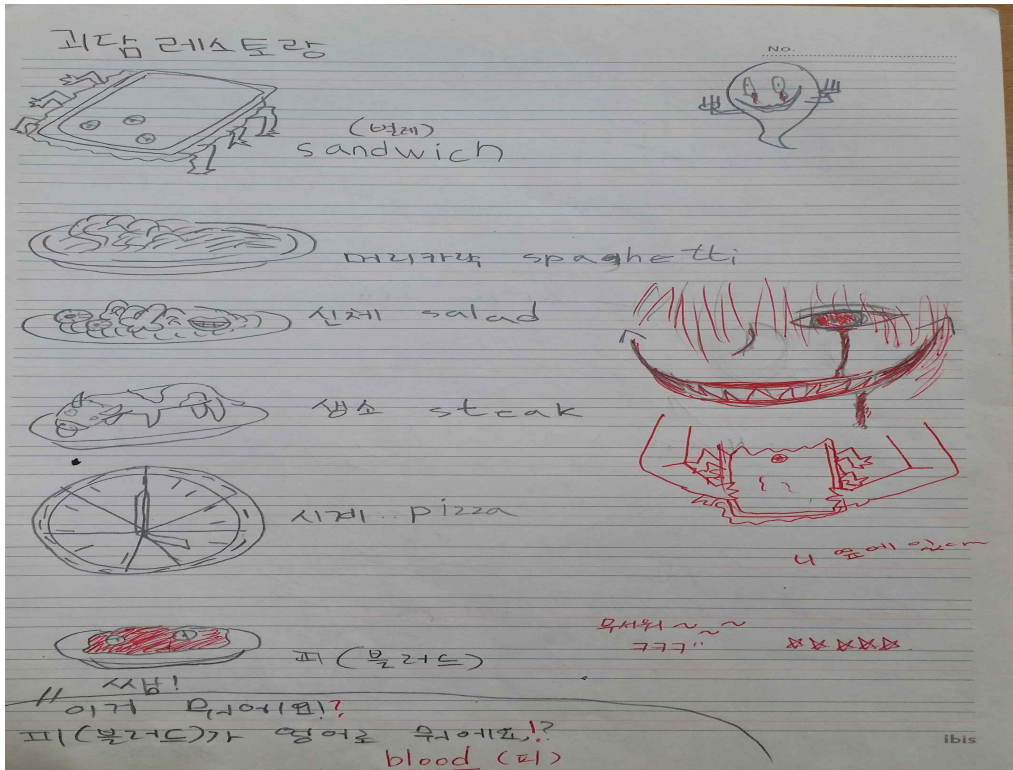 괴담 레스토랑
No.
(벌레)
sandwich
머리카락 spaghetti
신체 salad
생소 steak
시계 pizza
니 옆에 있다
무서워 ~ ~ ~
ㅋㅋㅋ
☆☆☆☆☆
피 (블러드)
쌤!
이거 뭐에요!?
피(블러드)가 영어로 뭐에요!?
blood (피)
ibis